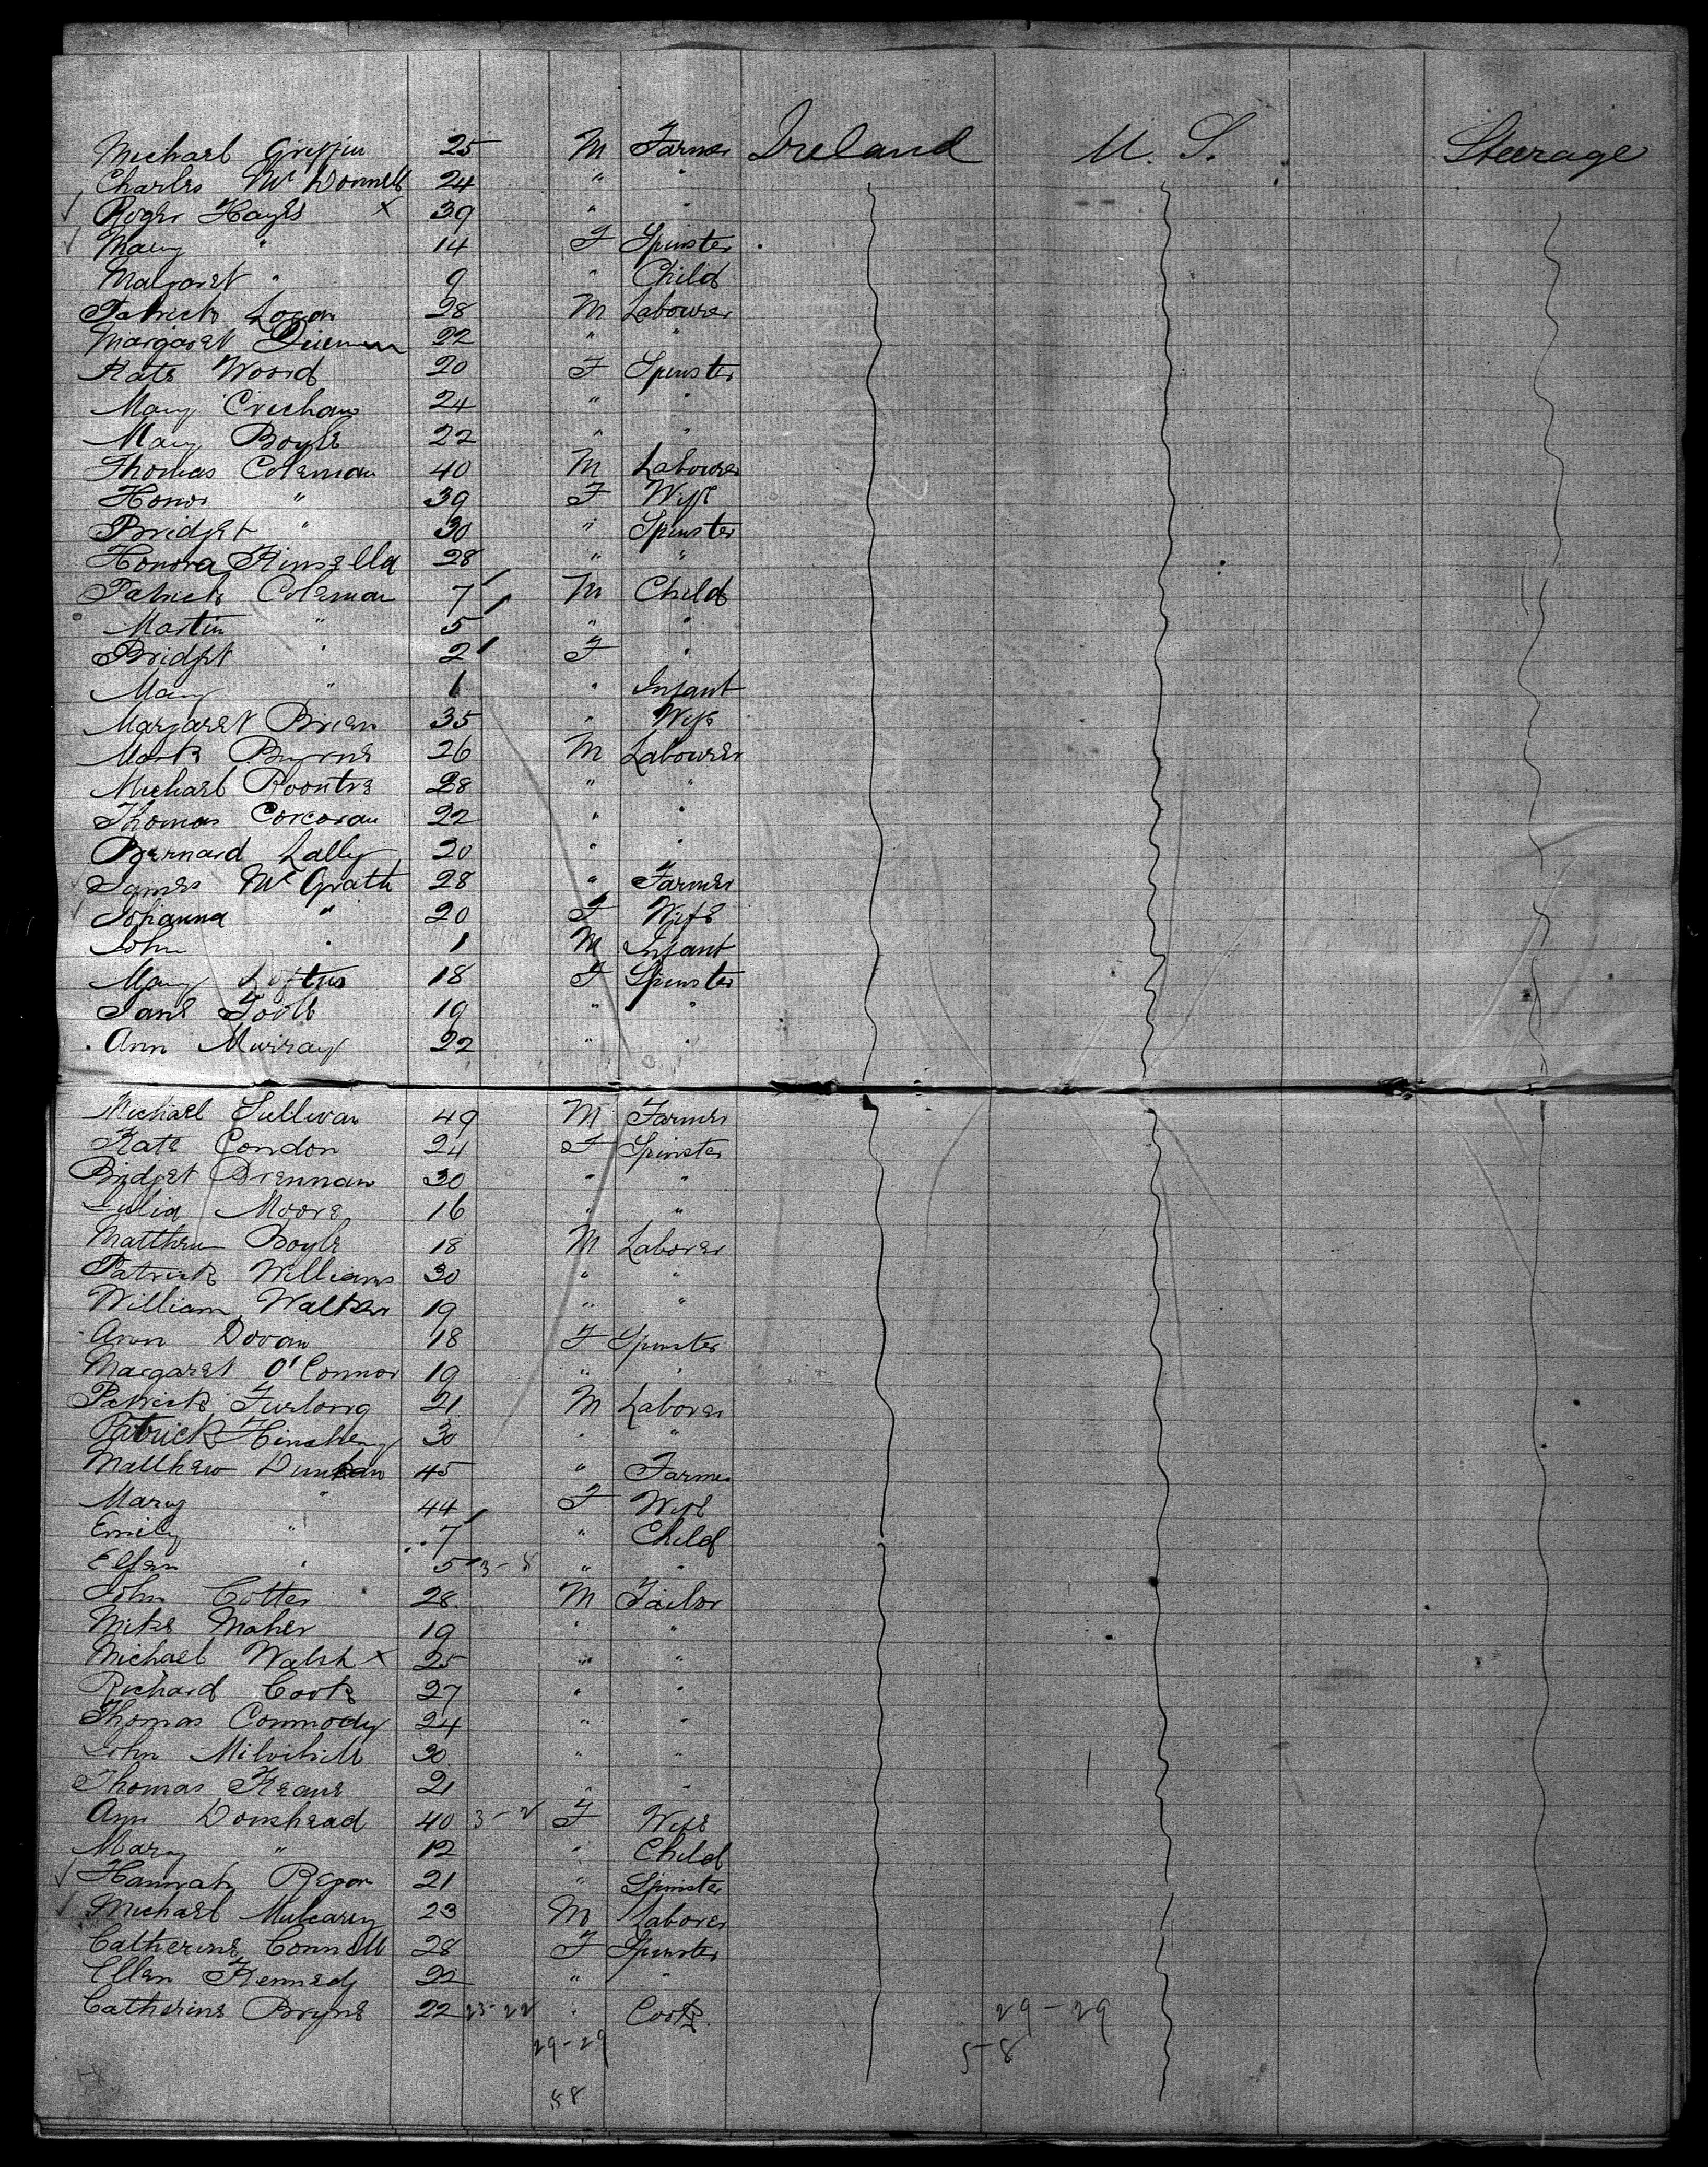 Michael Griffin 25 M Farmer Ireland U. S. Steerage
Charles McDonnell 24 " "
Roger Hayes x 39 " "
Mary " 14 F Spinster
Margaret " 9 " Child
Patrick Logan 28 M Labourer
Margaret 22 " "
Kate Woods 20 F Spinster
Mary Creehan 24 " "
Mary Boyle 22 " "
Thomas Coleman 40 M Labourer
Honor " 39 F Wife
Bridget " 30 " Spinster
Honora Kinsella 28 " "
Patrick Coleman 7 M Child
Martin " 5 " "
Bridget " 2 F "
Mary " 1 " Infant
Margaret Brien 35 " Wife
Mark Byrne 26 M Labourer
Michael 28 " "
Thomas Corcoran 22 " "
Bernard Lally 20 " "
James McGrath 28 " Farmer
Johanna " 20 F Wife
John " 1 M Infant
Mary Loftus 18 F Spinster
Jane Toole 19 " "
Ann Murray 22 " "
Michael Sullivan 49 M Farmer
Kate Condon 24 F Spinster
Bridget Drennan 30 " "
Julia Moore 16 " "
Matthew Boyle 18 M Laborer
Patrick Williams 30 " "
William Walker 19 " "
Ann Doran 18 F Spinster
Margaret O'Connor 19 " "
Patrick Furlong 21 M Laborer
Patrick Hinchey 30 " "
Matthew Duncan 45 " Farmer
Mary " 44 F Wife
Emily " 7 " Child
Ellen " 5 " "
John Cotter 28 M Tailor
Mike Maher 19 " "
Michael Walsh x 25 " "
Richard Cooke 27 " "
Thomas Conmody 24 " "
John 30 " "
Thomas Keane 21 " "
Ann Domshead 40 3-2 F Wife
Mary " 12 " Child
Hannah Regan 21 " Spinster
Michael Mulcarey 23 M Laborer
Catherine Connell 28 F Spinster
Ellen Kennedy 22 " "
Catherine Bryne 22 23-22 " Cook 29-29
29-29 58
58